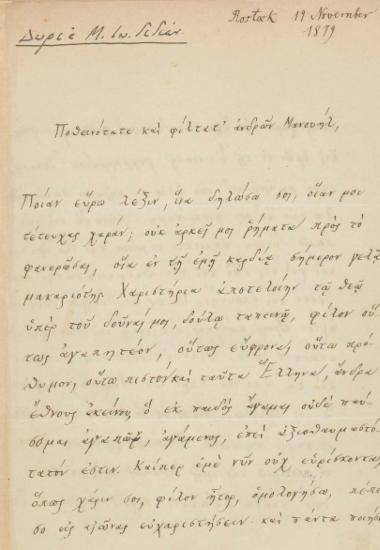 Rostock 19 November
1879
Ποθεινότατε καὶ φίλτατ' ἀνδρῶν Μανουήλ,
Ποίαν εὕρω λέξιν, ἵνα δηλώσω σοι, οἵαν μοι
τέτευχας χαράν; οὐκ ἀρκεῖ μοι ῥήματα πρὸς τὸ
φανερῶσαι, οἵα ἐν τῇ ἐμῇ καρδίᾳ σήμερον
μακαριότης. Χαριστήρια ἀποτελοίην τῷ θεῷ
ὑπὲρ τοῦ δοῦναί μοι, δούλῳ ταπεινῷ, φίλον οὕ
τως ἀγαπητέον, οὕτως εὔφρονα, οὕτω πρό
θυμον, οὕτω πιστὸν καὶ ταῦτα Ἕλληνα, ἄνδρα
ἔθνους ἐκείνου, ὃ ἐκ παιδὸς ἄγαμαι οὐδὲ παύ
σομαι ἀγαπῶν, ἀγάμενος, ἐπεὶ ἀξιοθαυμαστό
τατόν ἐστιν. Καίπερ ἐμὲ νῦν οὐχ εὑρίσκοντα,
ὅπως χάριν σοι, φίλον ἦτορ, ὁμολογήσω, πέπει
σο εἰς αἰῶνας εὐχαριστήσειν καὶ πάντα